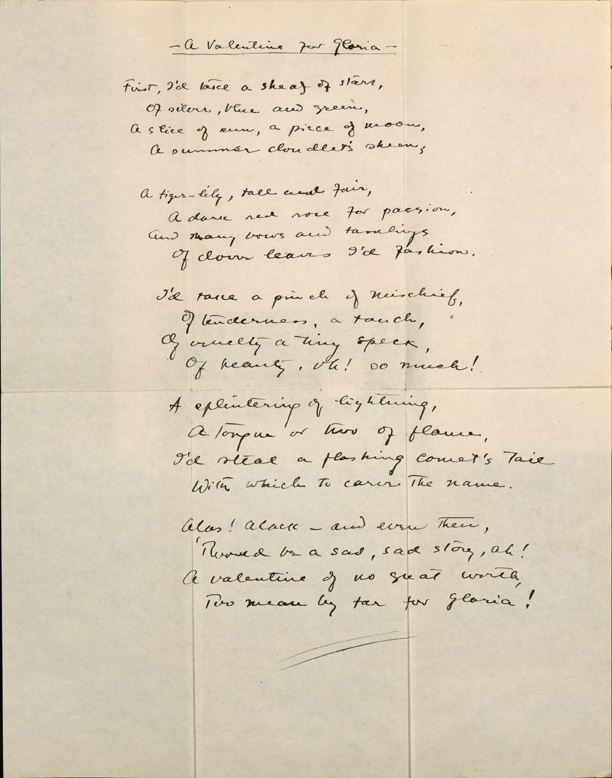 - A Valentine for Gloria -
First, I'd take a sheaf of stars,
Of silver, blue and green,
A slice of sun, a piece of moon,
A summer cloudlet's sheen;
A tiger-lily, tall and fair,
A dark red rose for passion,
And many bows and
Of clover leaves I'd fashion.
I'd take a pinch of mischief,
Of tenderness, a touch,
Of cruelty a tiny speck,
Of beauty, oh! so much!
A splintering of lightning,
A tongue or two of flame,
I'd steal a flashing comet's tail
With which to carve the name.
Alas! Alack - and even then,
'Twould be a sad, sad story, ah!
A valentine of no great worth,
Too mean by far for Gloria!